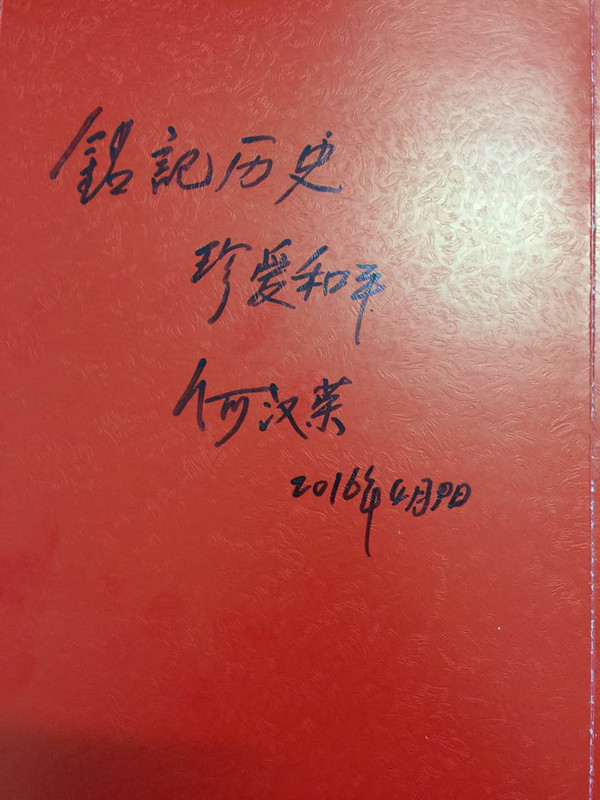 銘記历史
珍爱和平
何汉英
2016年4月9日